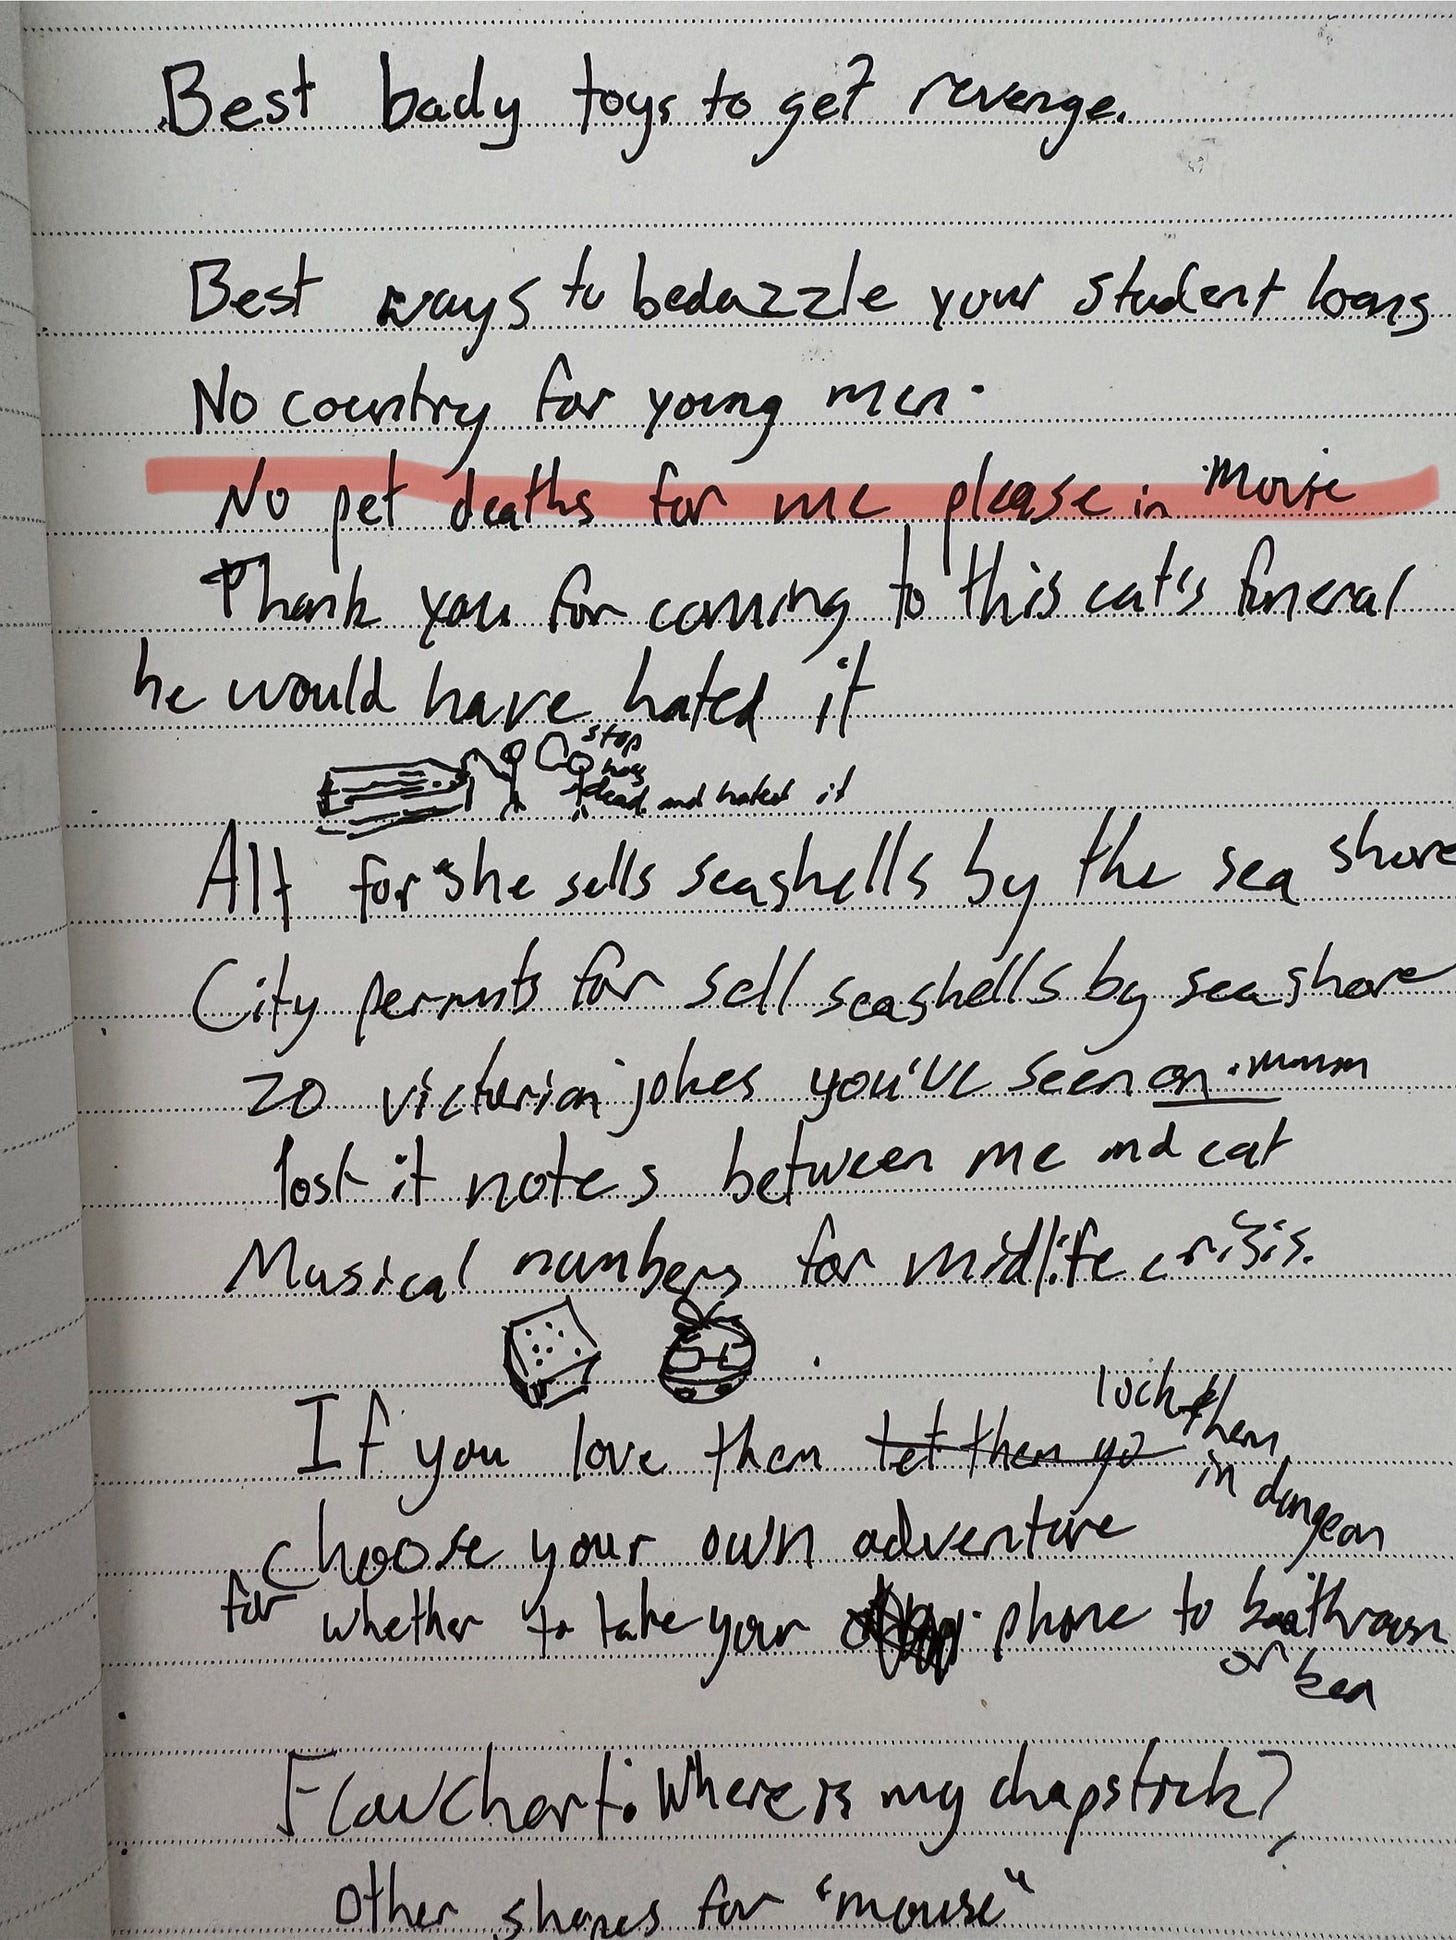 Best bady toys to get revenge.
Best ways to bedazzle your student loans
No country for young men.
No pet deaths for me please in Movie
Thank you for coming to this cat's funeral
he would have hated it
stop
dead and hated it
Alt for "she sells seashells by the sea shore
City permits for sell seashells by sea shore
20 victorian jokes you've seen on
lost it notes between me and cat
Musical numbers for midlife crisis.
If you love them let them go lock them
in dungeon
Choose your own adventure
for whether to take your phone to bathroom
or bed
Flowchart: Where is my chapstick?
Other shapes for "mouse"